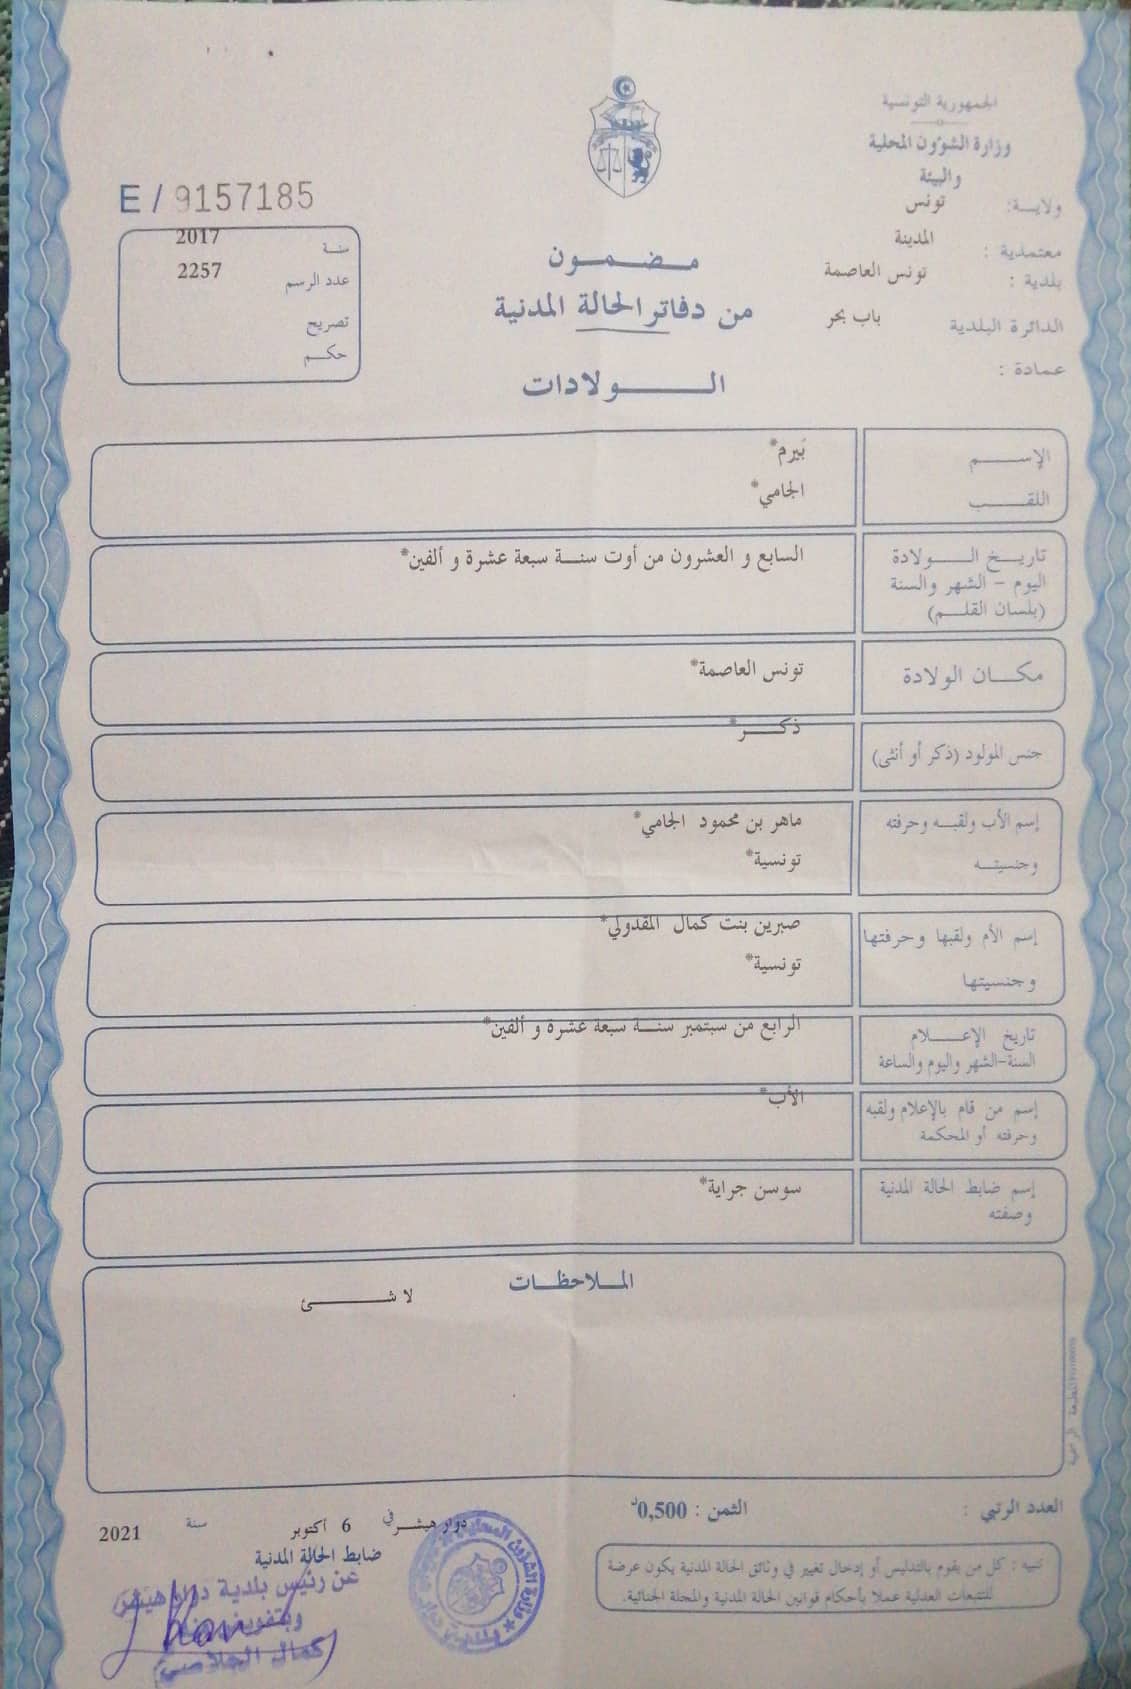 الجمهورية التونسية
وزارة الشؤون المحلية
والبيئة
ولايـــة: تونس
معتمدية : المدينة
بلدية : تونس العاصمة
الدائرة البلدية باب بحر
عمادة :
E / 9157185
سنــة 2017
عدد الرسم 2257
تصريح
حكــم
مــضــمــون
من دفاتر الحالة المدنية
الـــــولادات
الإســــم بَيرم*
اللقــــب الجامي*
تاريــخ الــــولادة السابع و العشرون من أوت سنــة سبعة عشرة و ألفين*
اليوم - الشهر والسنة
(بلسان القلــم)
مكــان الولادة تونس العاصمة*
جنس المولود (ذكر أو أنثى) ذكــــر*
إسم الأب ولقبــه وحرفته ماهر بن محمود الجامي*
وجنسيتــه تونسية*
إسم الأم ولقبها وحرفتها صبرين بنت كمال المقدولي*
وجنسيتها تونسية*
تاريخ الإعـــــلام الرابع من سبتمبر سنــة سبعة عشرة و ألفين*
السنة-الشهر واليوم والساعة
إسم من قام بالإعلام ولقبه الأب*
وحرفته أو المحكمة
إسم ضابط الحالة المدنية سوسن جراية*
وصفته
الملـاحظــات
لا شـــــــئ
العدد الرتبي :
الثمن : 0,500د
تنبيه : كل من يقوم بالتدليس أو إدخال تغيير في وثائق الحالة المدنية يكون عرضة
للتتبعات العدلية عملا بأحكام قوانين الحالة المدنية والمجلة الجنائية.
دوار هيشــر في 6 أكتوبر سنة 2021
ضابط الحالة المدنية
عن رئيس بلدية دوار هيشر
وبتفويض منه